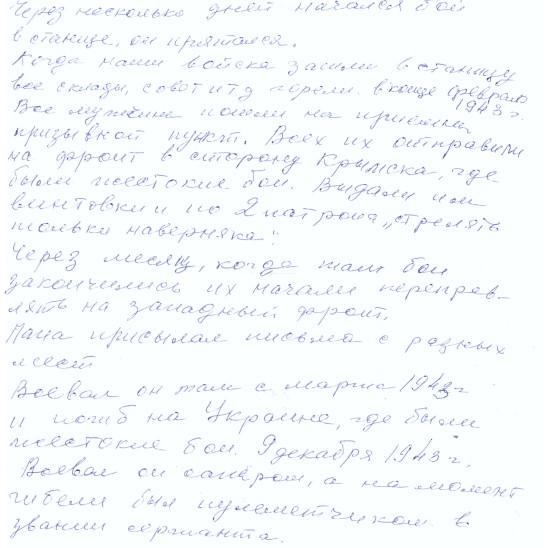 Через несколько дней начался бой
в станице, он прятался.
Когда наши войска зашли в станицу
все склады, горели. в конце февраля
1943 г.
Все мужчины пошли на приемный
призывной пункт. Всех их отправили
на фронт в сторону Крымска, где
были жестокие бои. Выдали им
винтовки и по 2 патрона „стрелять
только наверняка".
Через месяц, когда там бои
закончились их начали переправ-
лять на западный фронт.
Папа присылал письма с разных
мест
Воевал он там с марта 1943 г
и погиб на Украине, где были
жестокие бои. 9 декабря 1943 г.
Воевал он сапёром, а на момент
гибели был пулеметчиком в
звании сержанта.